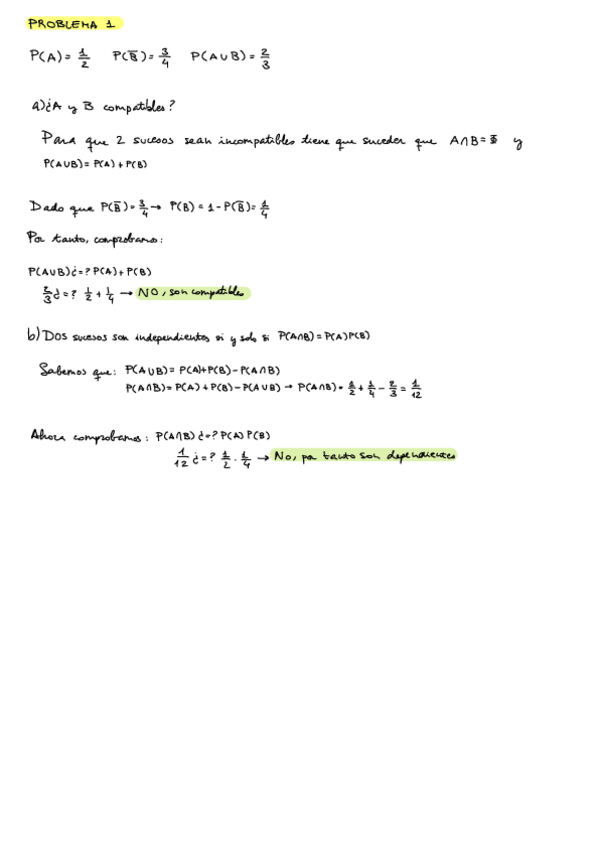 PROBLEMA 1
P(A) = 1/2 P(B̅) = 3/4 P(A∪B) = 2/3
a) ¿A y B compatibles?
Para que 2 sucesos sean incompatibles tiene que suceder que A∩B = Φ y
P(A∪B) = P(A) + P(B)
Dado que P(B̅) = 3/4 → P(B) = 1 - P(B̅) = 1/4
Por tanto, comprobamos:
P(A∪B) ¿=? P(A) + P(B)
2/3 ¿=? 1/2 + 1/4 → NO, son compatibles
b) Dos sucesos son independientes si y solo si P(A∩B) = P(A) P(B)
Sabemos que: P(A∪B) = P(A) + P(B) - P(A∩B)
P(A∩B) = P(A) + P(B) - P(A∪B) → P(A∩B) = 1/2 + 1/4 - 2/3 = 1/12
Ahora comprobamos: P(A∩B) ¿=? P(A) P(B)
1/12 ¿=? 1/2 · 1/4 → No, por tanto son dependientes